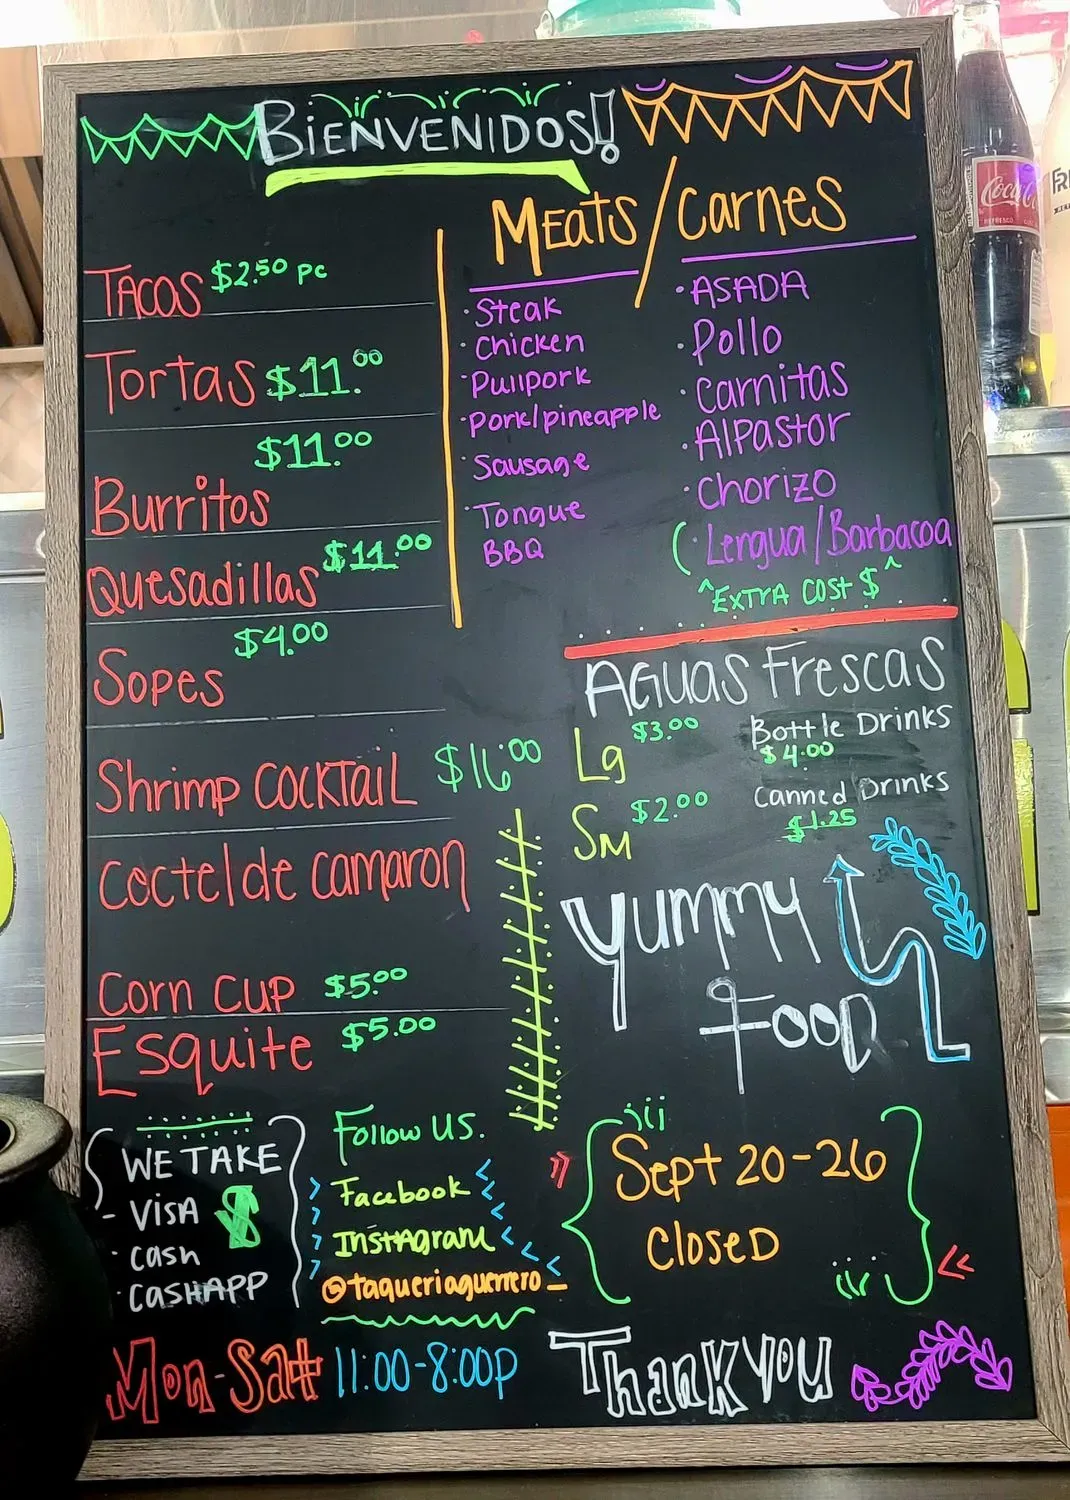 BIENVENIDOS!
TACOS $2.50 PC
Tortas $11.00
$11.00
Burritos
Quesadillas $11.00
Sopes $4.00
Shrimp COCKTAIL $16.00
Coctel de camaron
Corn CUP $5.00
Esquite $5.00
MEATS/Carnes
· Steak
· Chicken
· Pullpork
· Pork/pineapple
· Sausage
· Tongue
BBQ
· ASADA
· Pollo
· Carnitas
· AlPastor
· Chorizo
( · Lengua/Barbacoa
^EXTrA COST $^
AGUAS Frescas
Lg $3.00
SM $2.00
Bottle Drinks
$4.00
Canned Drinks
$1.25
Yummy
Food
WE TAKE
- VISA $
· cash
· CASHAPP
Follow US.
Facebook
Instagram
@taqueriaguerrero_
Sept 20-26
Closed
Mon-Sat 11:00-8:00p
Thank You
Coca-Co
REFRESCO